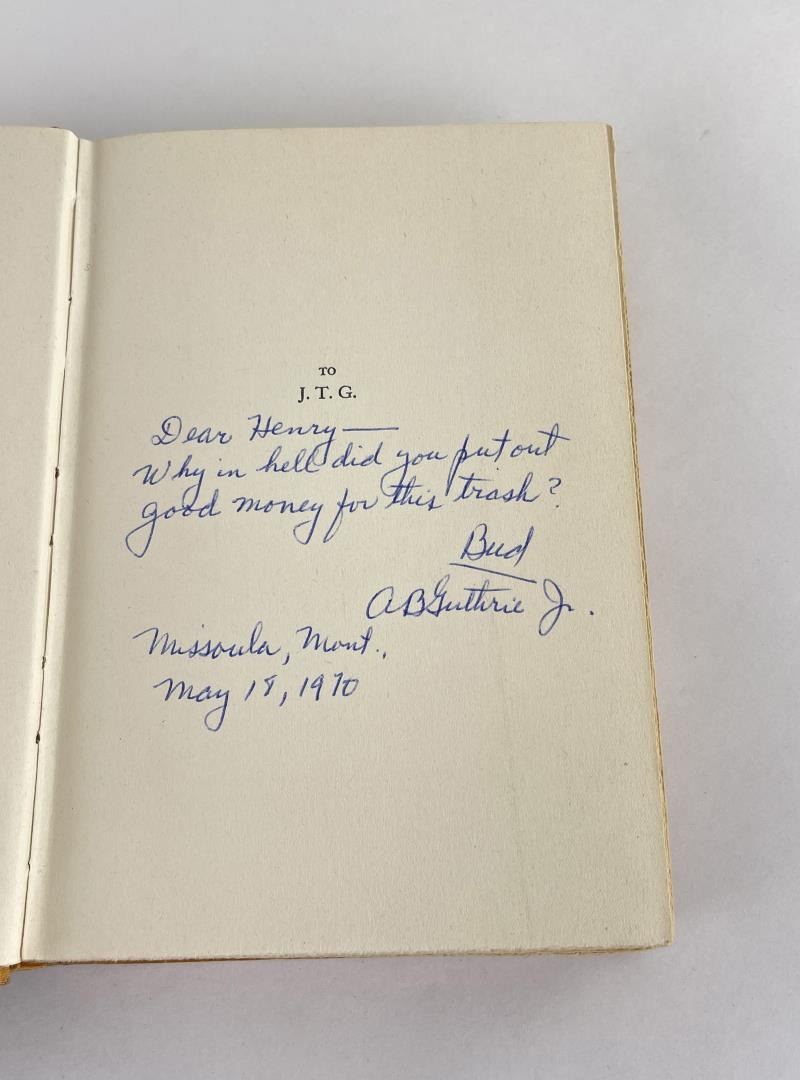 TO
J. T. G.
Dear Henry—
Why in hell did you put out
good money for this trash?
Bud
A B Guthrie Jr.
Missoula, Mont.,
May 18, 1970